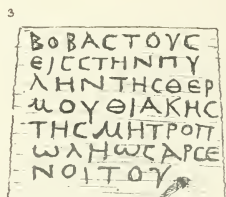 3
ΒΟΒΑCΤΟΥC
ΕΙCCΤΗΝΠΥ
ΛΗΝΤΗCΘΕΡ
ΜΟΥΘΙΑΚΗC
ΤΗCΜΗΤΡΟΠ
ΩΛΗΩCΑΡCΕ
ΝΟΙΤΟΥ